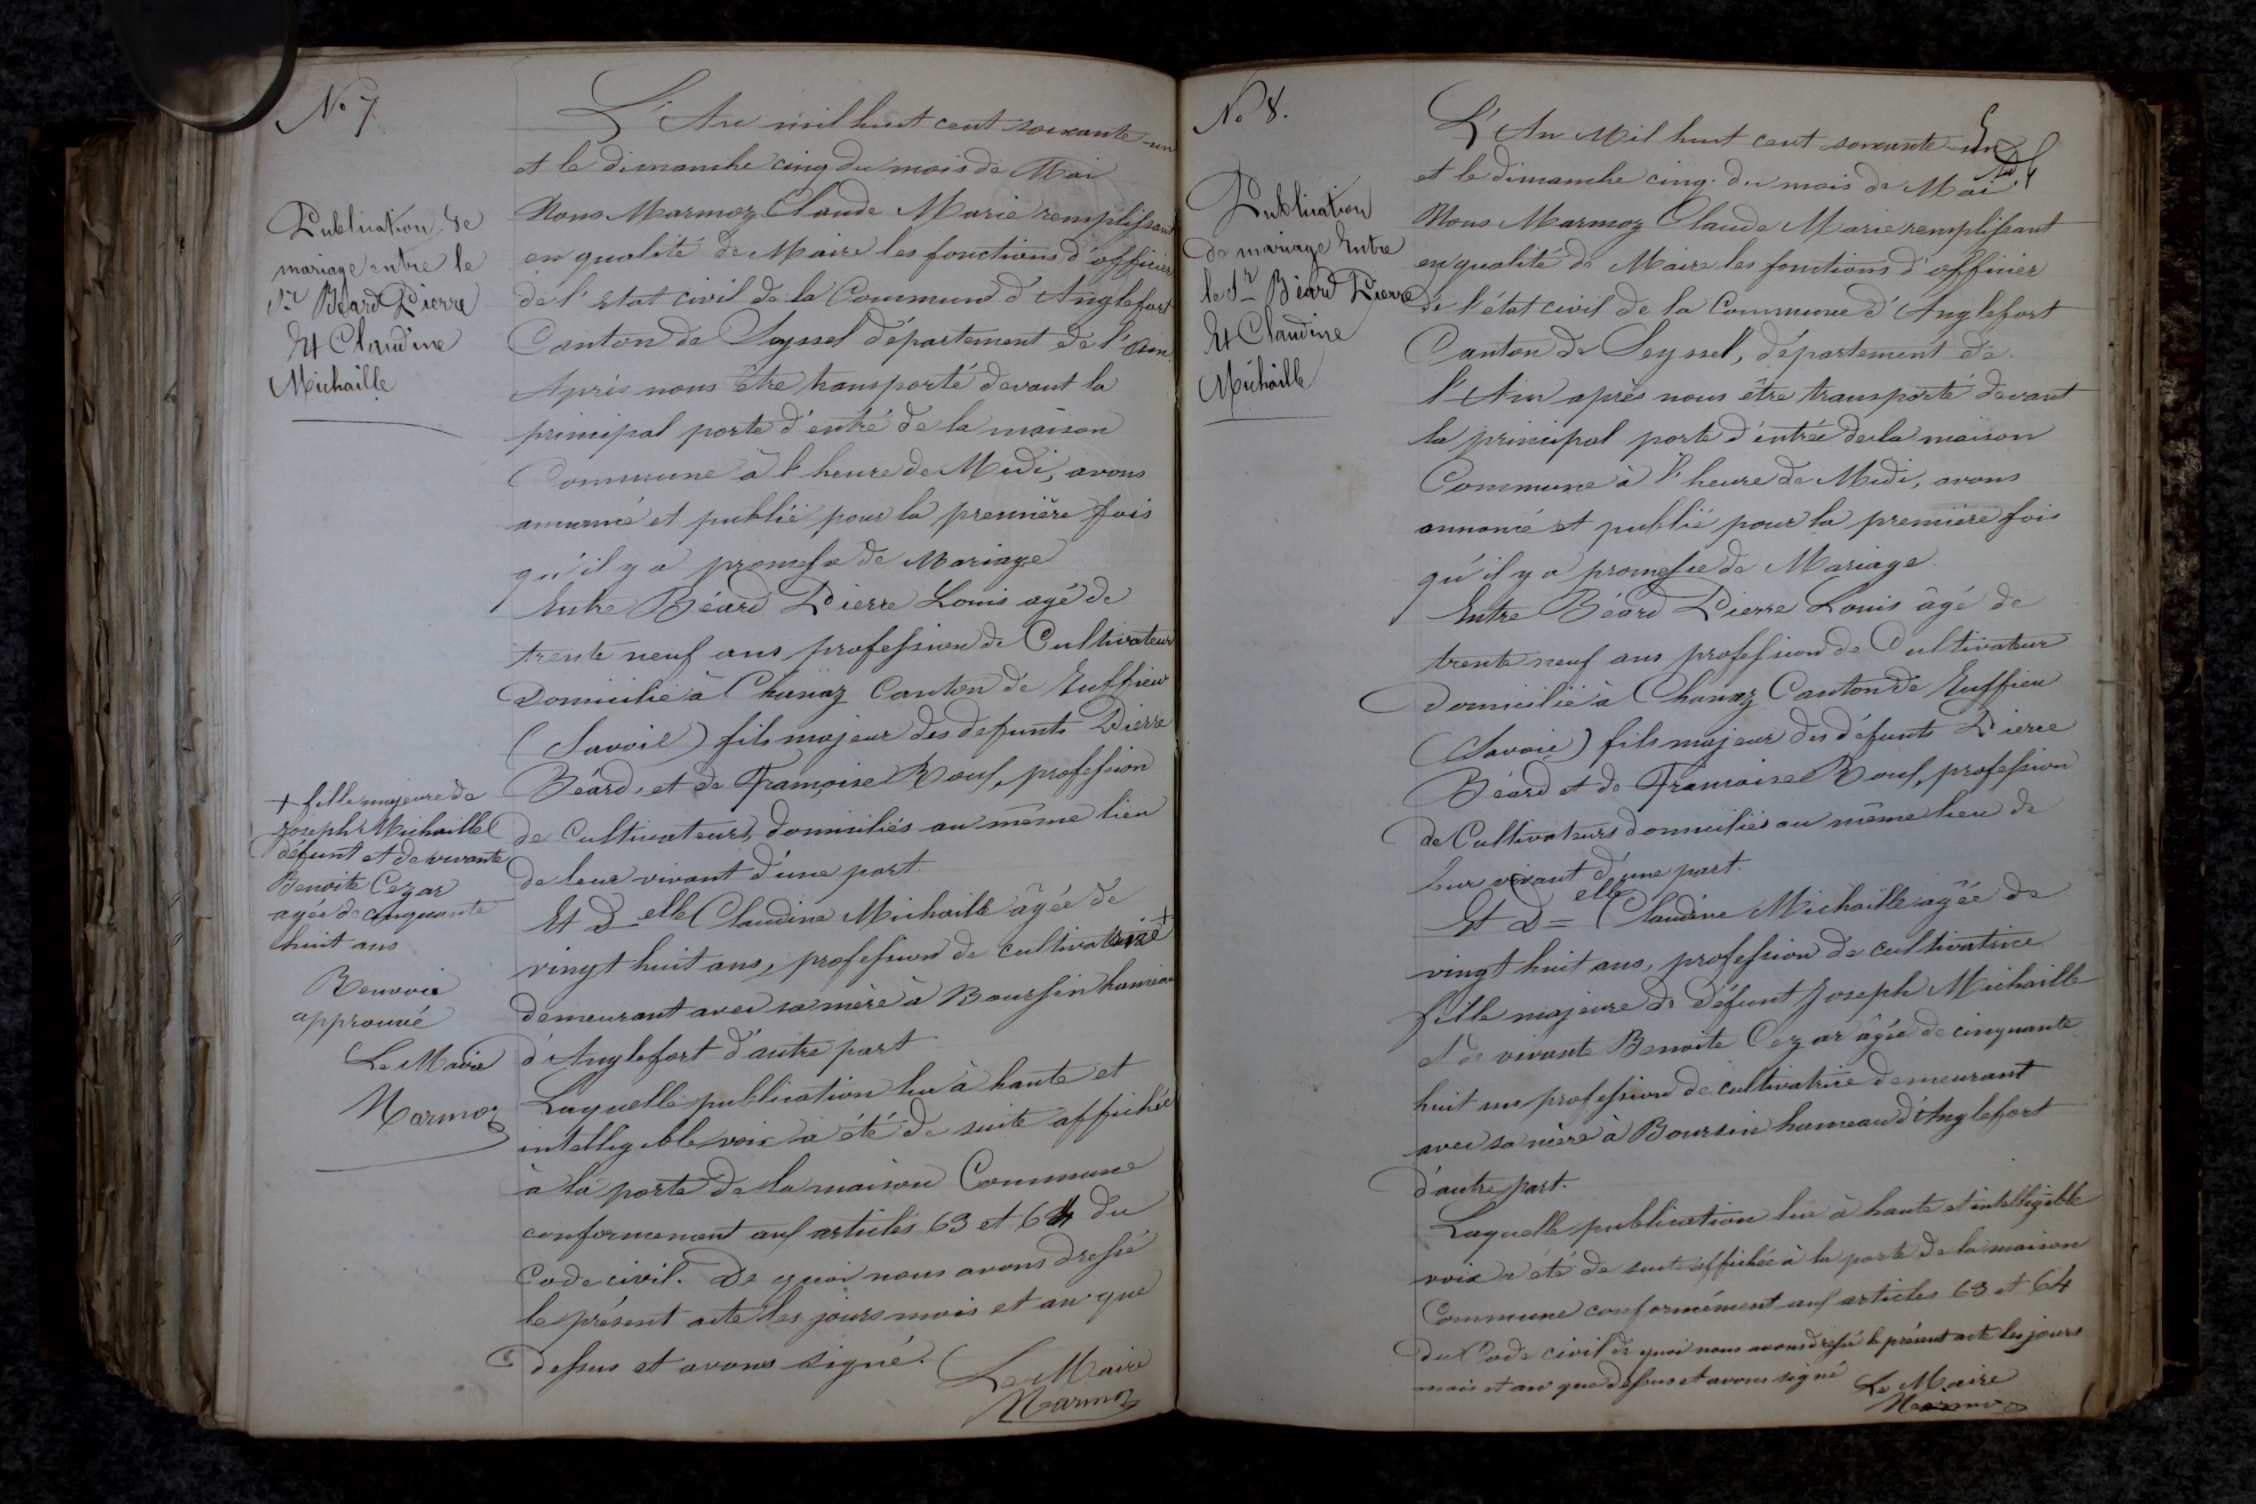 No 7
Publication de
mariage entre le
Sr Béard Pierre
Et Claudine
Michaille
L'An mil huit cent soixante-un
et le dimanche cinq du mois de Mai
Nous Marmoz Claude Marie remplissant
en qualité de Maire les fonctions d'officier
de l'état civil de la Commune d'Anglefort
Canton de Seyssel département de l'Ain
Après nous être transporté devant la
principal porte d'entré de la maison
Commune à l'heure de Midi, avons
annoncé et publié pour la première fois
qu'il y a promesse de Mariage
Entre Béard Pierre Louis agé de
trente neuf ans profession de Cultivateur
Domicilié à Chanaz Canton de Ruffieu
(Savoie) fils majeur des defunts Pierre
Béard, et de Françoise Roux, profession
de Cultivateurs domiciliés au même lieu
de leur vivant d'une part.
Et Delle Claudine Michaille âgée de
vingt huit ans, profession de cultivatrice +
demeurant avec sa mère à Boursin hameau
d'Anglefort d'autre part
Laquelle publication lue à haute et
intelligible voix a été de suite affichée
à la porte de la maison Commune
conformement aux articles 63 et 64 du
Code civil. De quoi nous avons dressé
le présent acte les jours mois et an que
dessus et avons signé.
Le Maire
Marmoz
+ fille majeure de
Joseph Michaille
défunt et de vivante
Benoite Cezar
agée de cinquante
huit ans
Renvoie
approuvé
Le Maire
Marmoz
No 8.
Publication
de mariage Entre
le Sr Béard Pierre
Et Claudine
Michaille
L'An Mil huit cent soixante-un
et le dimanche cinq du mois de Mai
Nous Marmoz Claude Marie remplissant
en qualité de Maire les fonctions d'officier
de l'état civil de la Commune d'Anglefort
Canton de Seyssel, département de
l'Ain après nous être transporté devant
la principal porte d'entrée de la maison
Commune à l'heure de Midi, avons
annoncé et publié pour la première fois
qu'il y a promesse de Mariage
Entre Béard Pierre Louis âgé de
trente neuf ans profession de Cultivateur
Domicilié à Chanaz Canton de Ruffieu
(Savoie) fils majeur des défunts Pierre
Béard et de Francoise Roux, profession
de Cultivateurs domiciliés au même lieu de
leur vivant d'une part.
Et Delle Claudine Michaille agée de
vingt huit ans, profession de cultivatrice
fille majeure de défunt Joseph Michaille
et de vivante Benoite Cezar âgée de cinquante
huit ans profession de cultivatrice demeurant
avec sa mère à Boursin hameau d'Anglefort
d'autre part.
Laquelle publication lue à haute et intelligible
voix a été de suite affichée à la porte de la maison
Commune conformément aux articles 63 et 64
du Code civil de quoi nous avons dressé le présent acte les jours
mois et an que dessus et avons signé
Le Maire
Marmoz